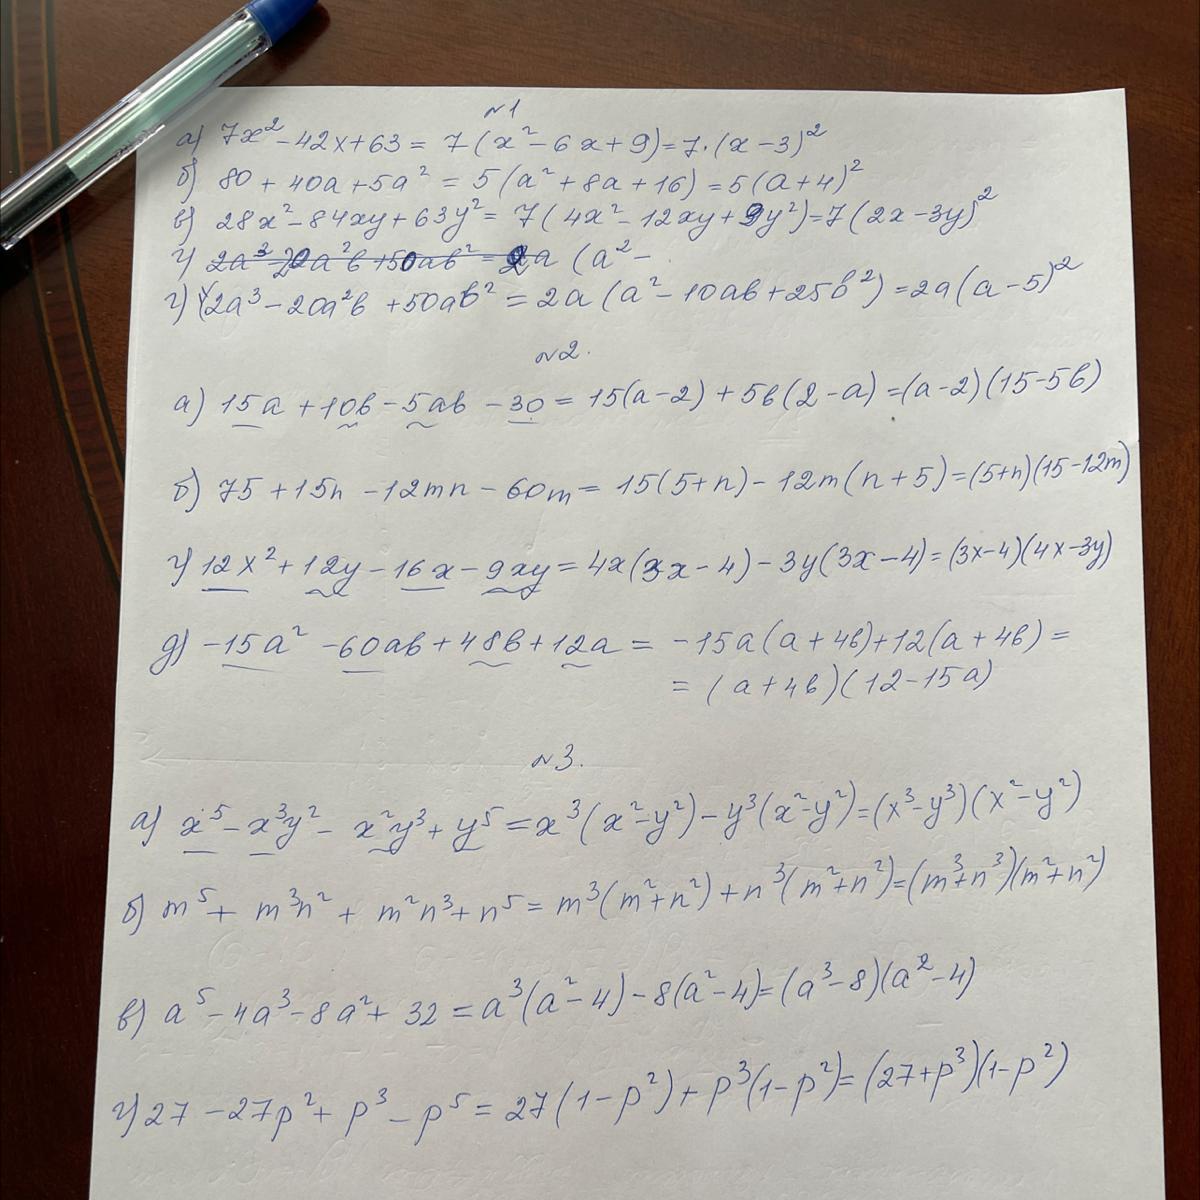 №1
а) 7x² - 42x + 63 = 7(x² - 6x + 9) = 7·(x - 3)²
б) 80 + 40a + 5a² = 5(a² + 8a + 16) = 5(a + 4)²
в) 28x² - 84xy + 63y² = 7(4x² - 12xy + 9y²) = 7(2x - 3y)²
г) 2a³ - 20a²b + 50ab² = 2a (a² -
г) 2a³ - 20a²b + 50ab² = 2a(a² - 10ab + 25b²) = 2a(a - 5)²
№2.
а) 15a + 10b - 5ab - 30 = 15(a - 2) + 5b(2 - a) = (a - 2)(15 - 5b)
б) 75 + 15n - 12mn - 60m = 15(5 + n) - 12m(n + 5) = (5 + n)(15 - 12m)
г) 12x² + 12y - 16x - 9xy = 4x(3x - 4) - 3y(3x - 4) = (3x - 4)(4x - 3y)
д) -15a² - 60ab + 48b + 12a = -15a(a + 4b) + 12(a + 4b) =
= (a + 4b)(12 - 15a)
№3.
а) x⁵ - x³y² - x²y³ + y⁵ = x³(x² - y²) - y³(x² - y²) = (x³ - y³)(x² - y²)
б) m⁵ + m³n² + m²n³ + n⁵ = m³(m² + n²) + n³(m² + n²) = (m³ + n³)(m² + n²)
в) a⁵ - 4a³ - 8a² + 32 = a³(a² - 4) - 8(a² - 4) = (a³ - 8)(a² - 4)
г) 27 - 27p² + p³ - p⁵ = 27(1 - p²) + p³(1 - p²) = (27 + p³)(1 - p²)